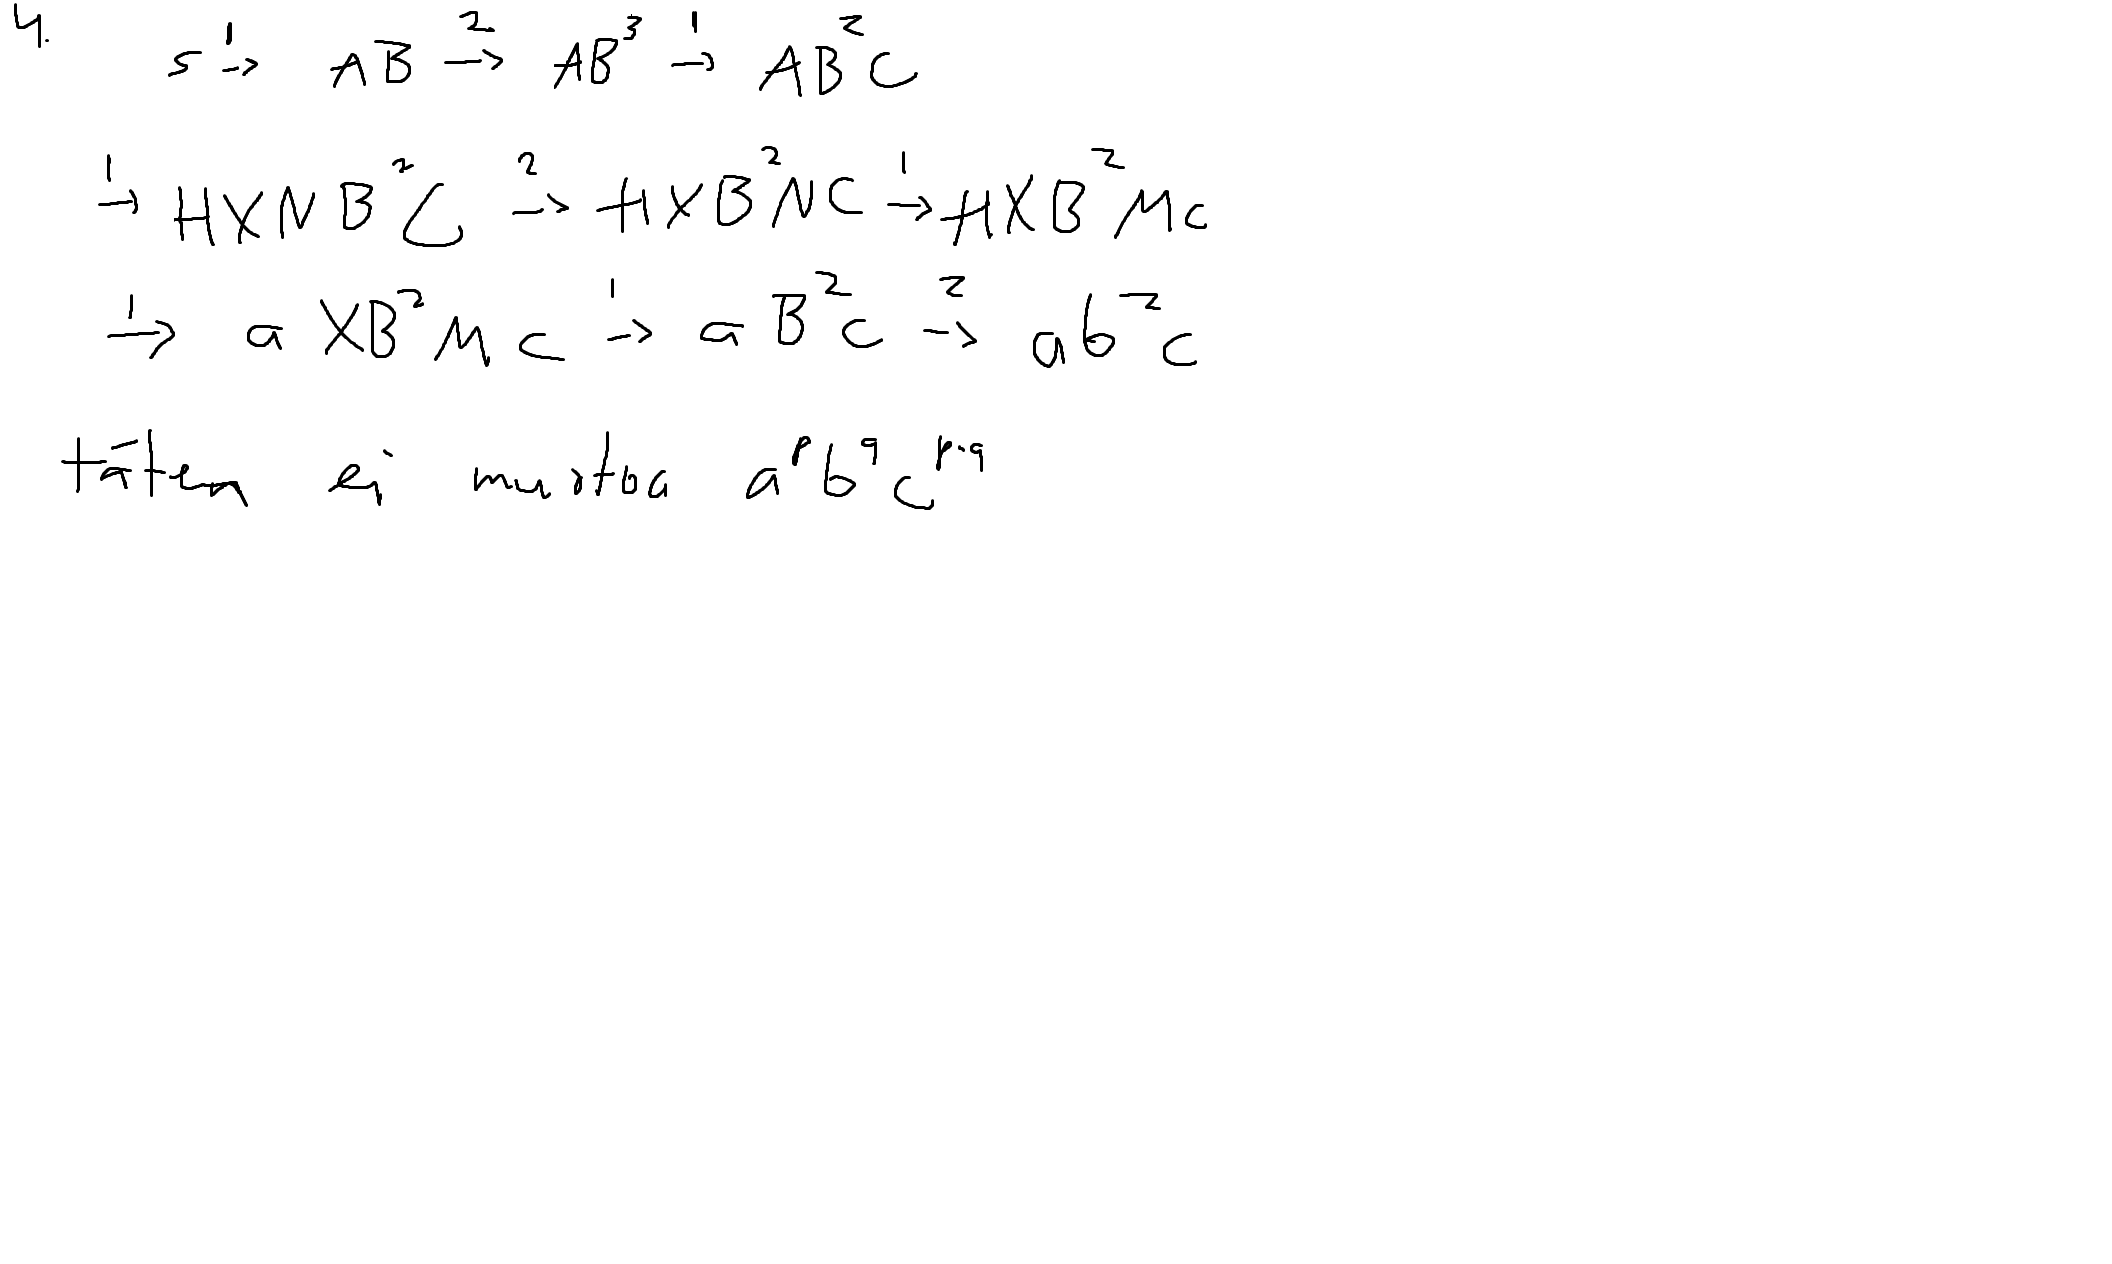 4. S →¹ AB →² AB³ →¹ AB²C
→¹ HXNB²C →² HXB²NC →¹ HXB²Mc
→¹ aXB²Mc →¹ aB²c →² ab²c
täten ei muotoa aᵖb^qc^p·q